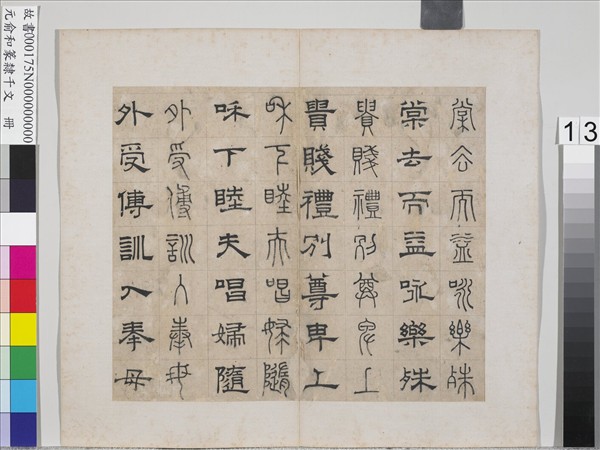 故書000175N000000000
元俞和篆隸千文 冊
13
棠去而益咏樂殊
棠去而益咏樂殊
貴賤禮別尊卑上
貴賤禮別尊卑上
咊下睦夫唱婦隨
咊下睦夫唱婦隨
外受傅訓入奉母
外受傅訓入奉母